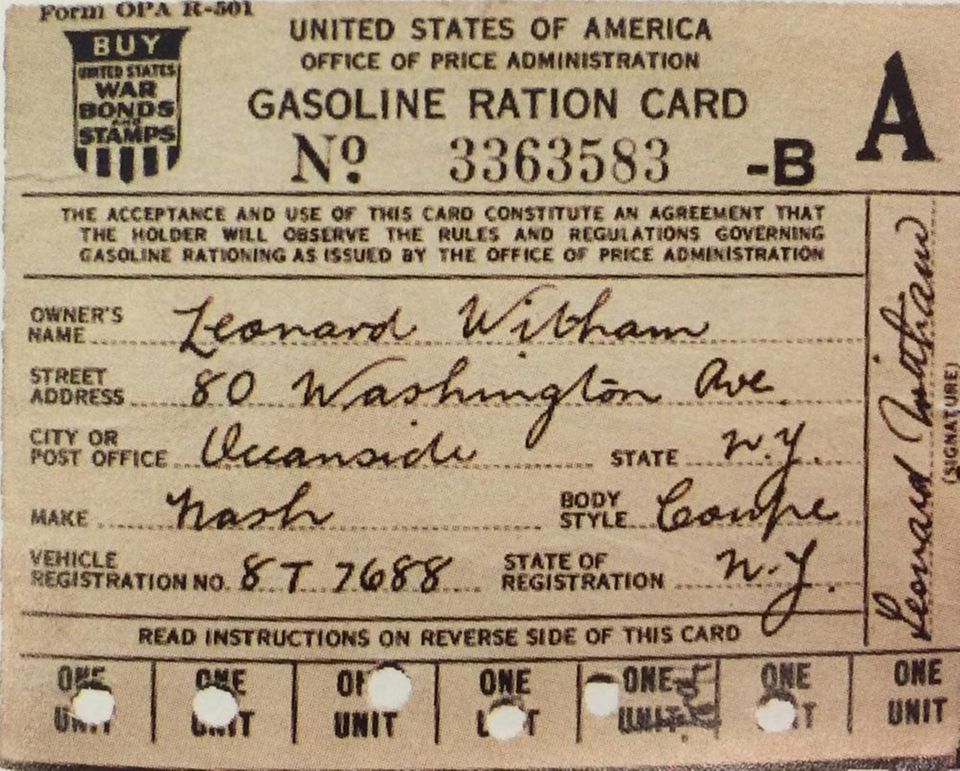 Form OPA R-501
BUY
UNITED STATES
WAR
BONDS
AND
STAMPS
UNITED STATES OF AMERICA
OFFICE OF PRICE ADMINISTRATION
GASOLINE RATION CARD
No. 3363583 -B
A
THE ACCEPTANCE AND USE OF THIS CARD CONSTITUTE AN AGREEMENT THAT
THE HOLDER WILL OBSERVE THE RULES AND REGULATIONS GOVERNING
GASOLINE RATIONING AS ISSUED BY THE OFFICE OF PRICE ADMINISTRATION
OWNER'S NAME Leonard Witham
STREET ADDRESS 80 Washington Ave.
CITY OR POST OFFICE Oceanside STATE N.Y.
MAKE Nash BODY STYLE Coupe
VEHICLE REGISTRATION NO. 8T 7688 STATE OF REGISTRATION N.Y.
Leonard Witham
(SIGNATURE)
READ INSTRUCTIONS ON REVERSE SIDE OF THIS CARD
ONE ONE ONE ONE ONE ONE ONE
UNIT UNIT UNIT UNIT UNIT UNIT UNIT